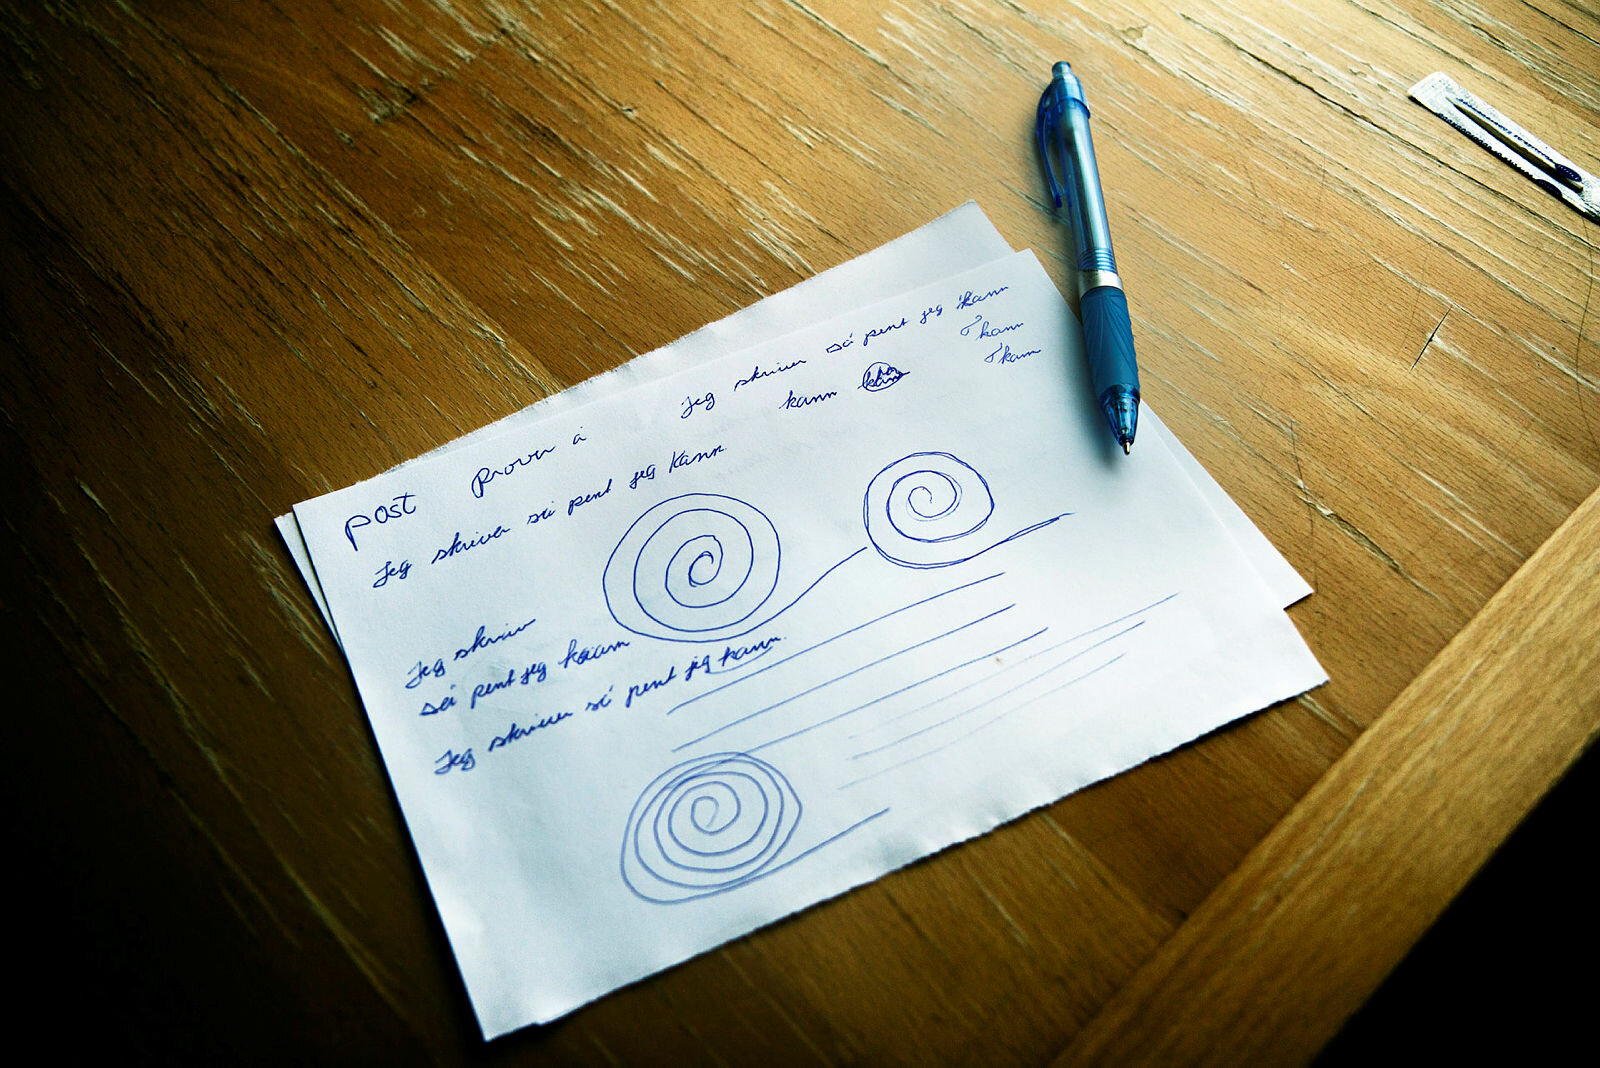 post prøver å
jeg skriver så pent jeg kann
kann
kann
kann
Jeg skriver så pent jeg kann
Jeg skriv
så pent jeg kaam
Jeg skriver så pent jeg kann.